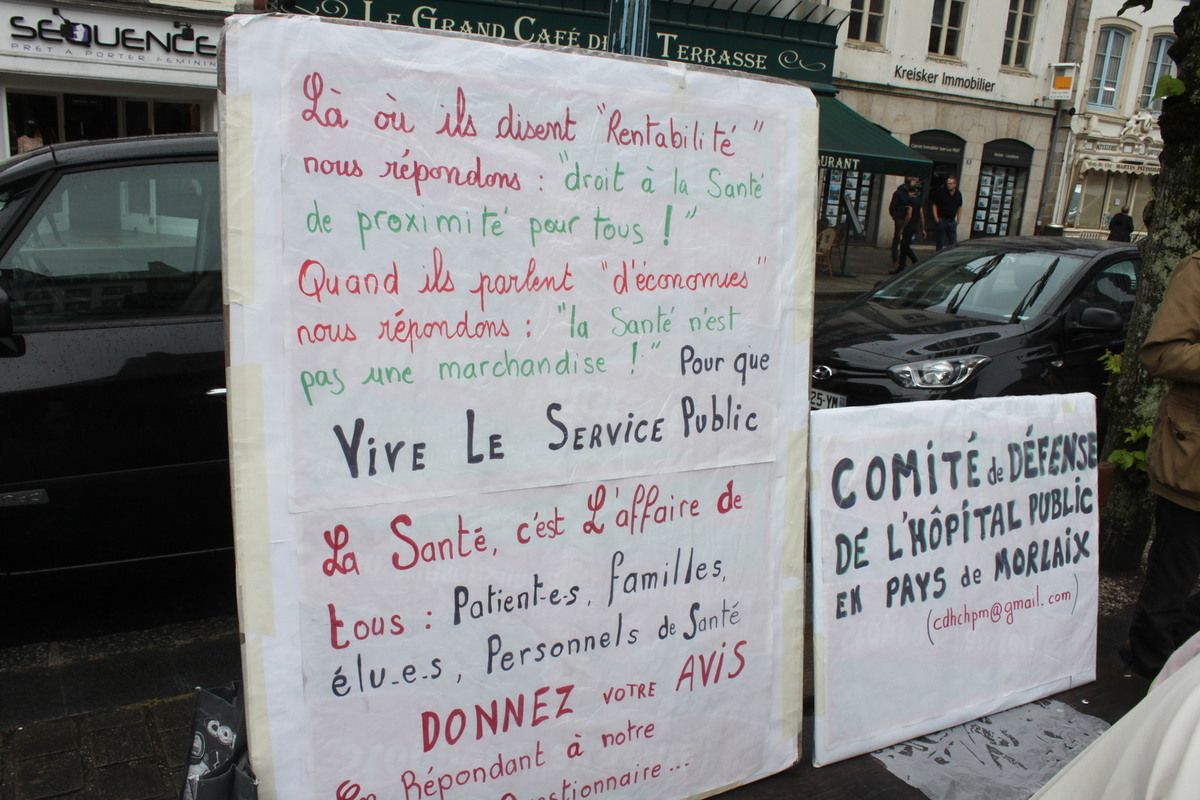 SEQUENCE
PRET A PORTER FEMININ
LE GRAND CAFÉ DE
TERRASSE
Kreisker Immobilier
URANT
Là où ils disent "Rentabilité"
nous répondons : "droit à la Santé
de proximité pour tous ! "
Quand ils parlent "d'économies"
nous répondons : "la Santé n'est
pas une marchandise ! " Pour que
VIVE LE SERVICE Public
La Santé, c'est L'affaire de
tous : Patient-e-s, familles,
élu-e-s, Personnels de Santé
DONNEZ VOTRE AVIS
En Répondant à notre
Questionnaire...
COMITÉ de DÉFENSE
DE L'HÔPITAL PUBLIC
EN PAYS de MORLAIX
(cdhchpm@gmail.com)
25-YM